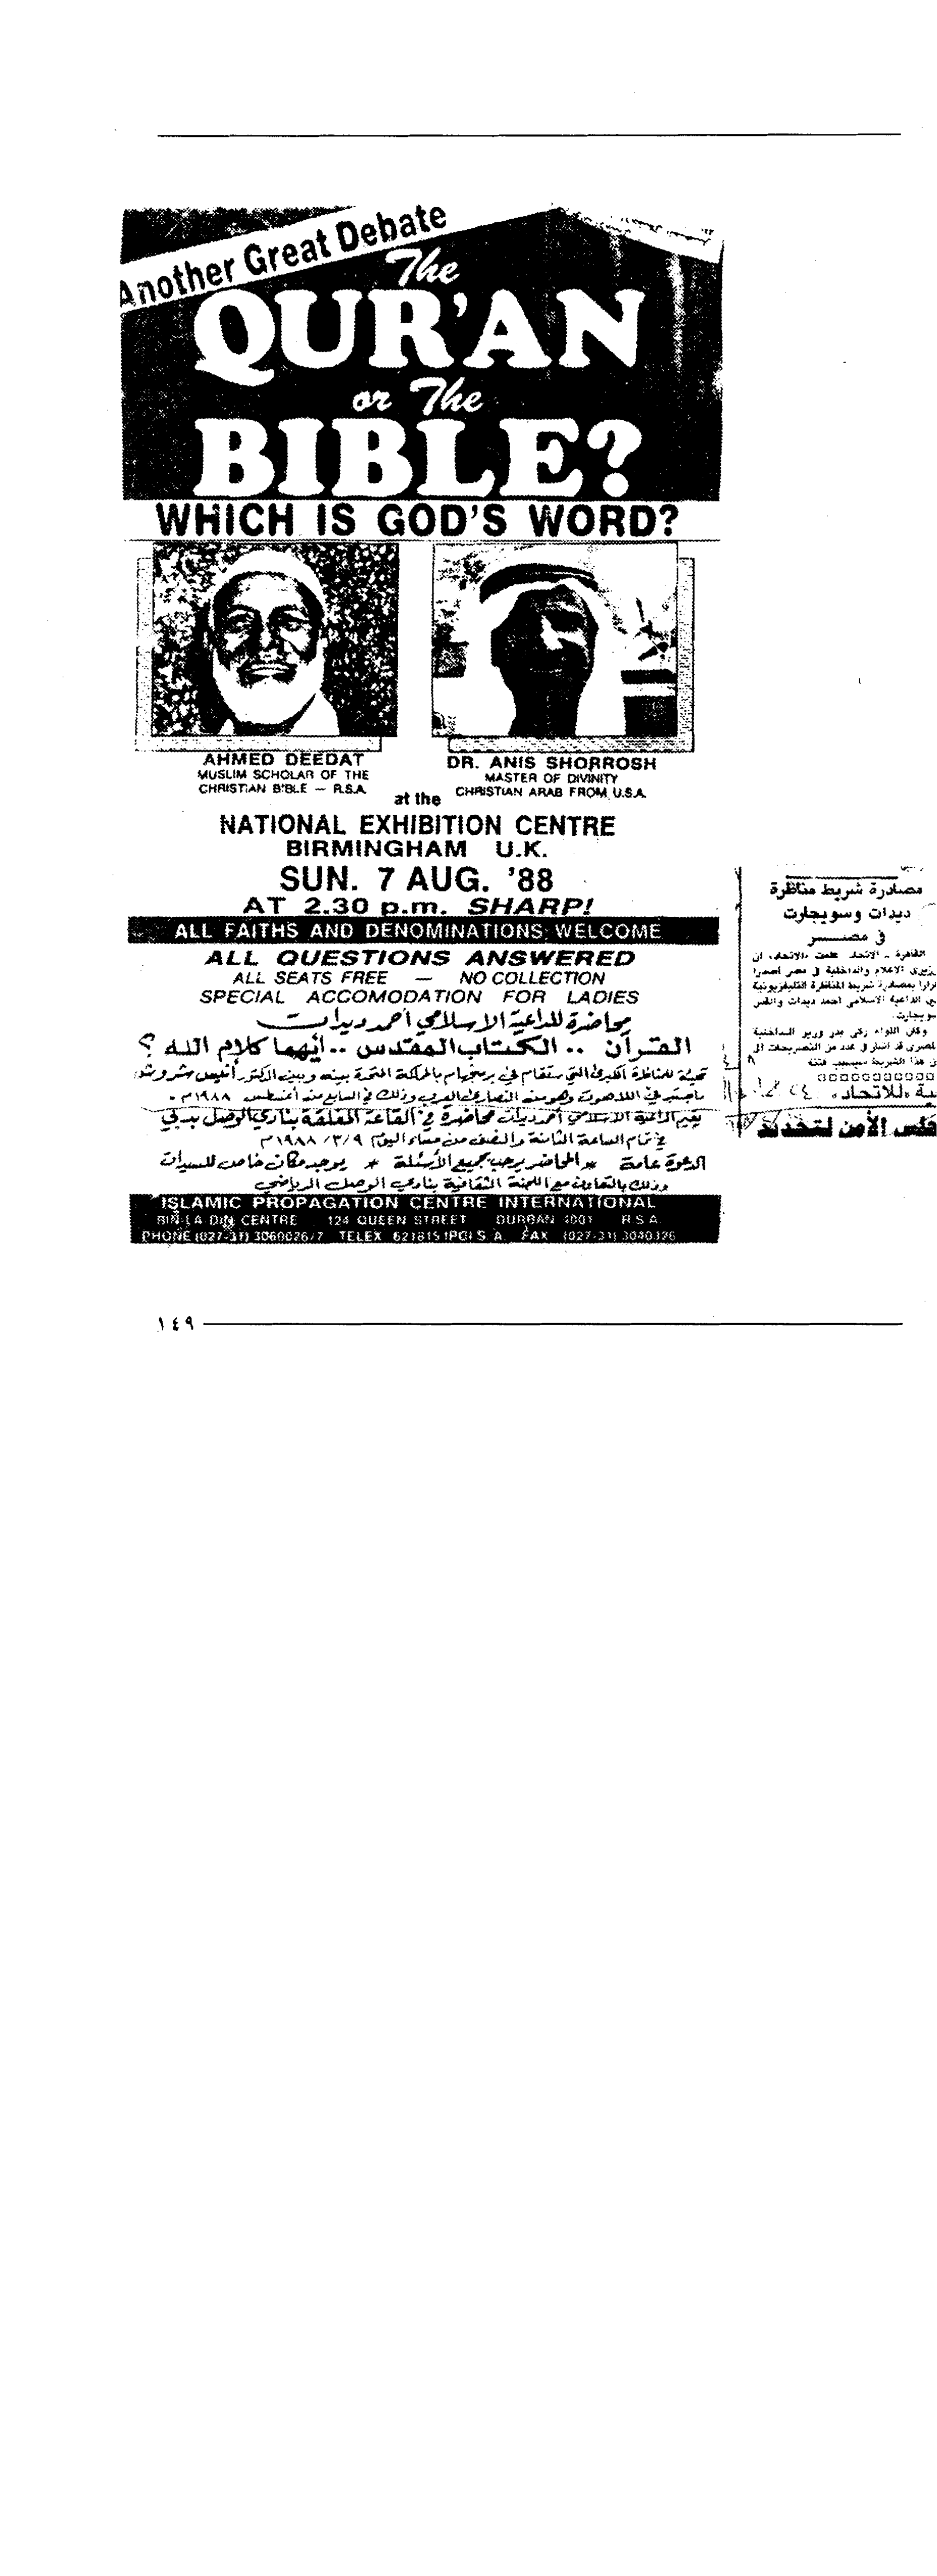 Another Great Debate
The
QUR'AN
or The
BIBLE?
WHICH IS GOD'S WORD?
AHMED DEEDAT
MUSLIM SCHOLAR OF THE
CHRISTIAN BIBLE — R.S.A.
DR. ANIS SHORROSH
MASTER OF DIVINITY
CHRISTIAN ARAB FROM U.S.A.
at the
NATIONAL EXHIBITION CENTRE
BIRMINGHAM U.K.
SUN. 7 AUG. '88
AT 2.30 p.m. SHARP!
ALL FAITHS AND DENOMINATIONS WELCOME
ALL QUESTIONS ANSWERED
ALL SEATS FREE — NO COLLECTION
SPECIAL ACCOMODATION FOR LADIES
محاضرة للداعية الإسلامي أحمد ديدات
القرآن .. الكتاب المقدس .. أيهما كلام الله ؟
للمناظرة الكبرى التي ستقام في برمنجهام بالمملكة المتحدة بينه وبين الدكتور أنيس شروش
ماجستير في اللاهوت وهو من النصارى العرب وذلك في السابع من أغسطس ١٩٨٨م .
يقيم الداعية الاسلامي أحمد ديدات محاضرة في القاعة المغلقة بنادي الوصل بدبي
في تمام الساعة الثامنة والنصف من مساء اليوم ٣/٩/ ١٩٨٨م
الدعوة عامة * المحاضر يرحب بجميع الأسئلة * يوجد مكان خاص للسيدات
وذلك بالتعاون مع اللجنة الثقافية بنادي الوصل الرياضي
ISLAMIC PROPAGATION CENTRE INTERNATIONAL
BIN LADIN CENTRE 124 QUEEN STREET DURBAN 4001 R.S.A.
PHONE (027-31) 3060026/7 TELEX FAX (027-31)
مصادرة شريط مناظرة
ديدات وسويجارت
في مصـــر
القاهرة ـ الاتحاد علمت «الاتحاد» ان
الاعلام والداخلية في مصر اصدرا
بمصادرة شريط المناظرة التليفزيونية
الداعية الاسلامي احمد ديدات والقس
سويجارت.
وكان اللواء زكي بدر وزير الداخلية
قد اشار في عدد من التصريحات الى
هذا الشريط سيسبب فتنة
«للاتحاد»
الأمن لتحديد
١٤٩